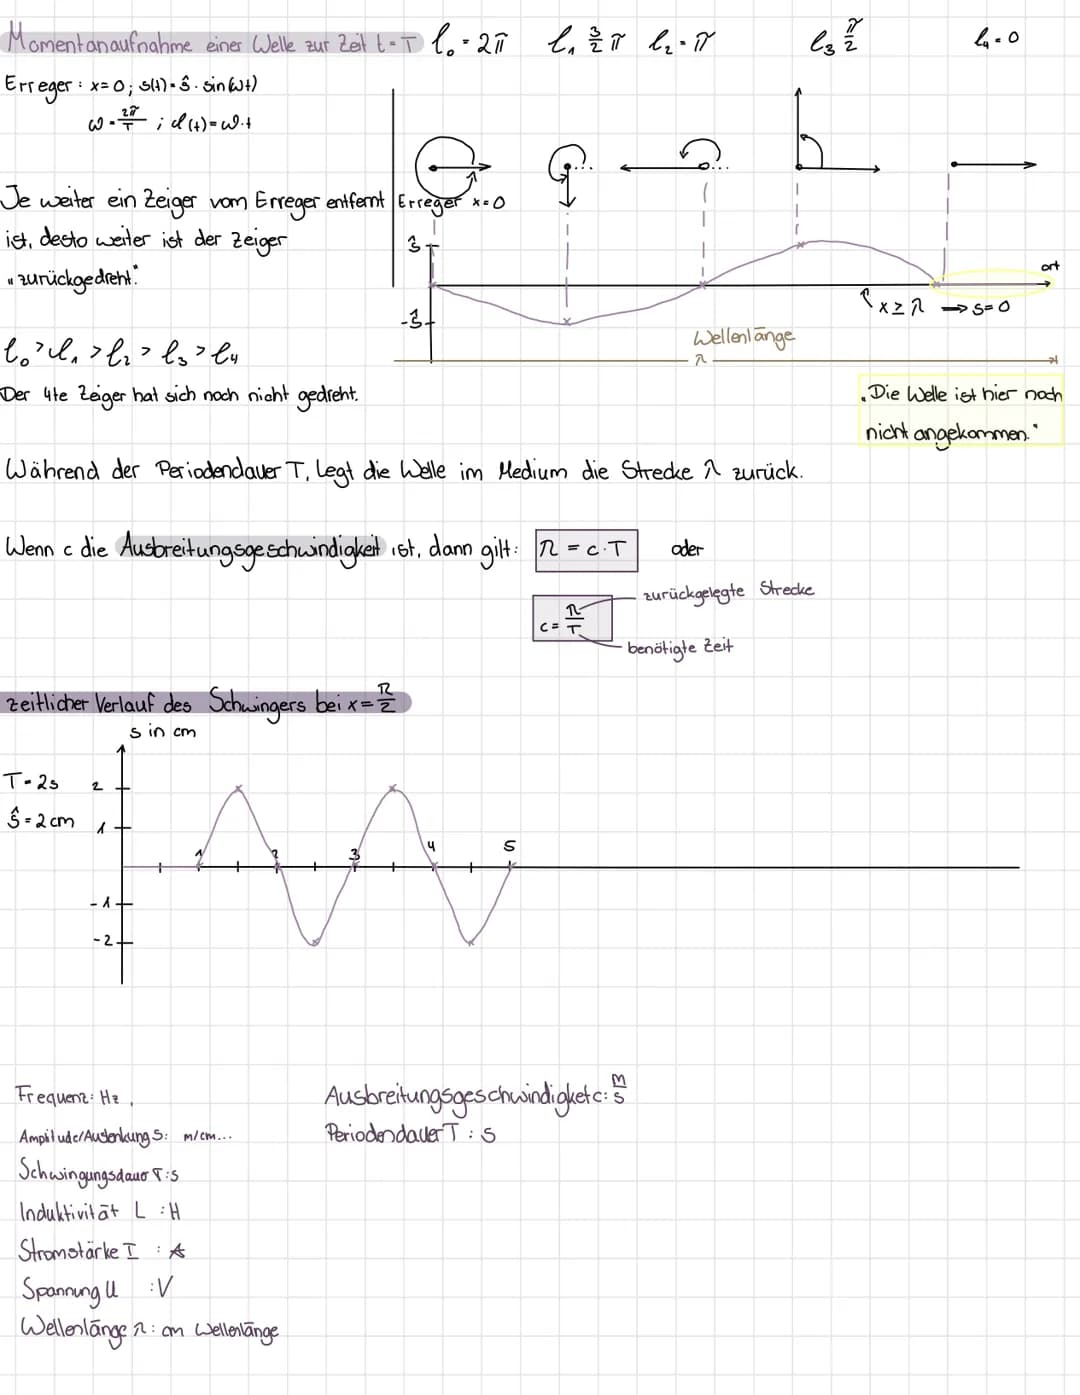 Momentanaufnahme einer Welle zur Zeit t=T
φ₀ = 2π φ₁ 3/2 π φ₂ = π φ₃ π/2 φ₄ = 0
Erreger: x=0; s(t) = ŝ · sin(ωt)
ω = 2π/T ; φ(t) = ω·t
Je weiter ein Zeiger vom Erreger entfernt
ist, desto weiter ist der Zeiger
"zurückgedreht."
Erreger x=0
ŝ
-ŝ
ort
x ≥ λ → s=0
Wellenlänge
λ
φ₀ > φ₁ > φ₂ > φ₃ > φ₄
Der 4te Zeiger hat sich noch nicht gedreht.
"Die Welle ist hier noch
nicht angekommen."
Während der Periodendauer T, legt die Welle im Medium die Strecke λ zurück.
Wenn c die Ausbreitungsgeschwindigkeit ist, dann gilt: λ = c·T oder
c = λ/T
zurückgelegte Strecke
benötigte Zeit
zeitlicher Verlauf des Schwingers bei x = λ/2
s in cm
T = 2s
ŝ = 2cm
2
1
-1
-2
1 2 3 4 5
Frequenz: Hz,
Ampilude/Auslenkung S: m/cm...
Schwingungsdauer T: s
Induktivität L : H
Stromstärke I : A
Spannung U : V
Wellenlänge λ: cm Wellenlänge
Ausbreitungsgeschwindigket c: m/s
Periodendauer T : s